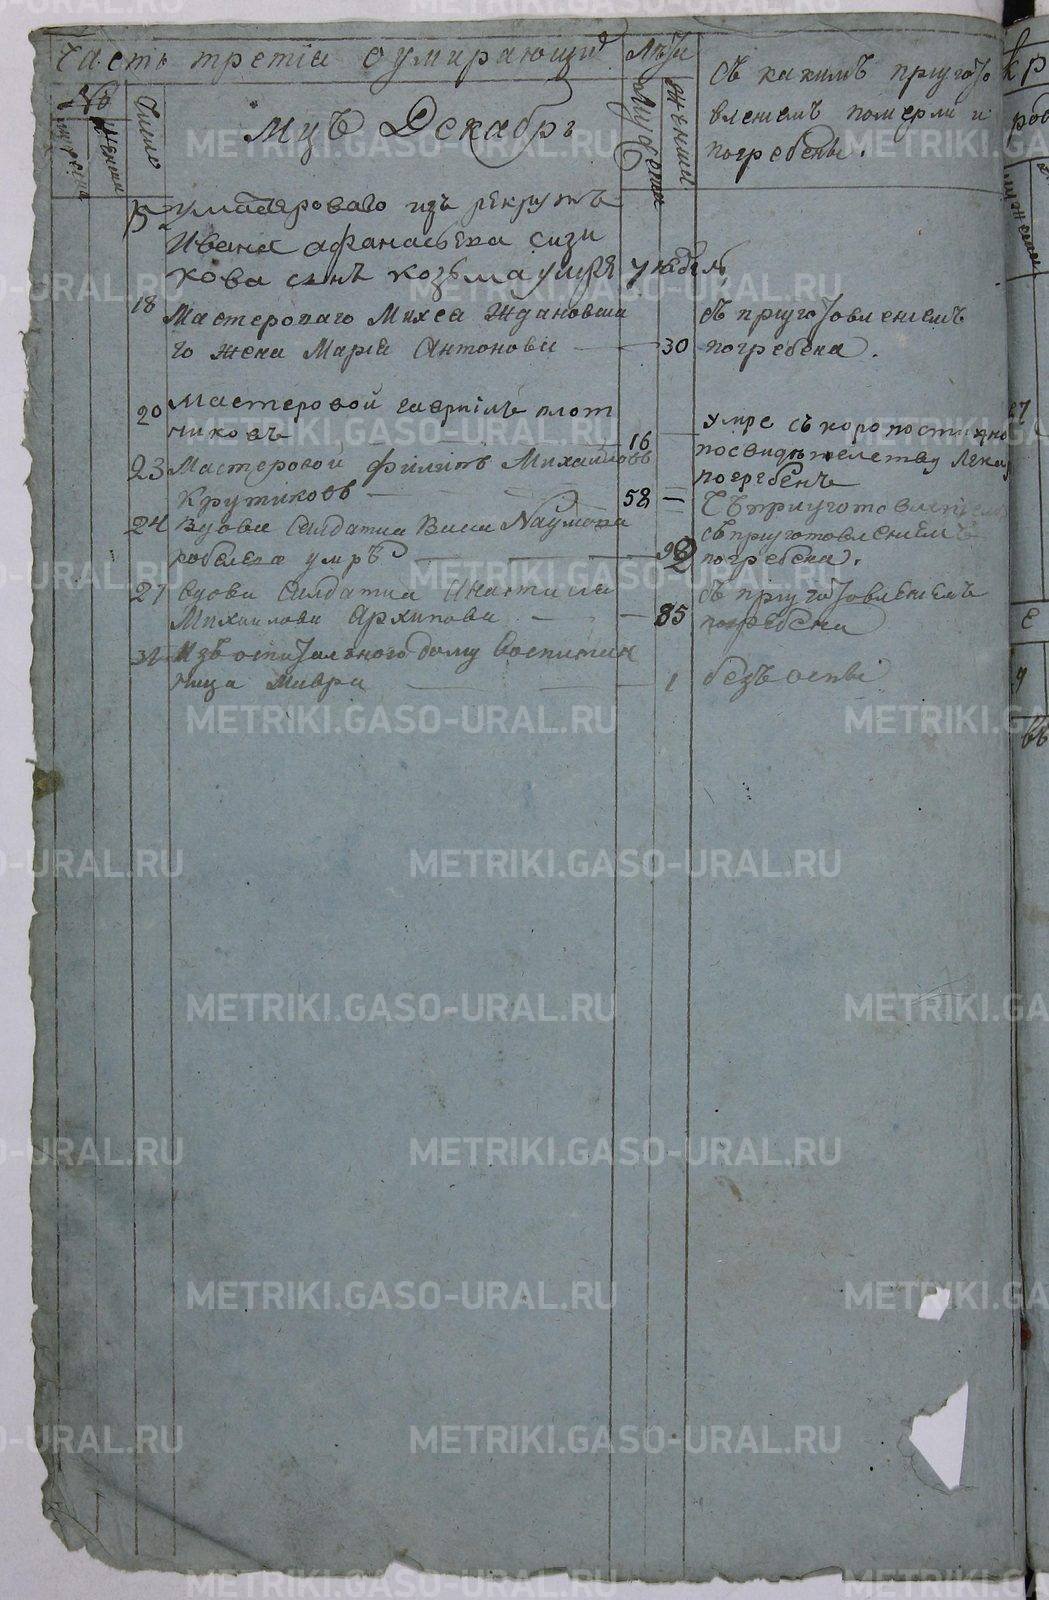 Часть третіа оумирающи
Лѣта
съ какимъ пригото
вленіемъ померли и
погребены.
№
Число
мужеска
женска
Мцъ Декабрь
15 умастероваго изъ рекрутъ
Ивана афанасьева сизи
кова сынъ козьма умре
18 Мастероваго Михея Ждановыхъ
го жена Маріа Антонова 30
съ приготовленіемъ
погребена.
20 Мастеровой гаврилъ плот
никовъ 16
умре скоропостижно
посвидѣтелству лека
погребенъ
23 Мастеровой филипъ Михайловъ
Крутиковъ 58
съ приготовленіемъ
24 вдова Салдатка Васса Наумова
умръ
съ приготовленіемъ
погребена.
27 вдова Салдатка Анастасіа
Михаилова Архипова 85
съ приготовленіемъ
погребена
31 Изъ оспитальнаго дому воспитан
ница Мавра 1
безъ оспы
METRIKI.GASO-URAL.RU